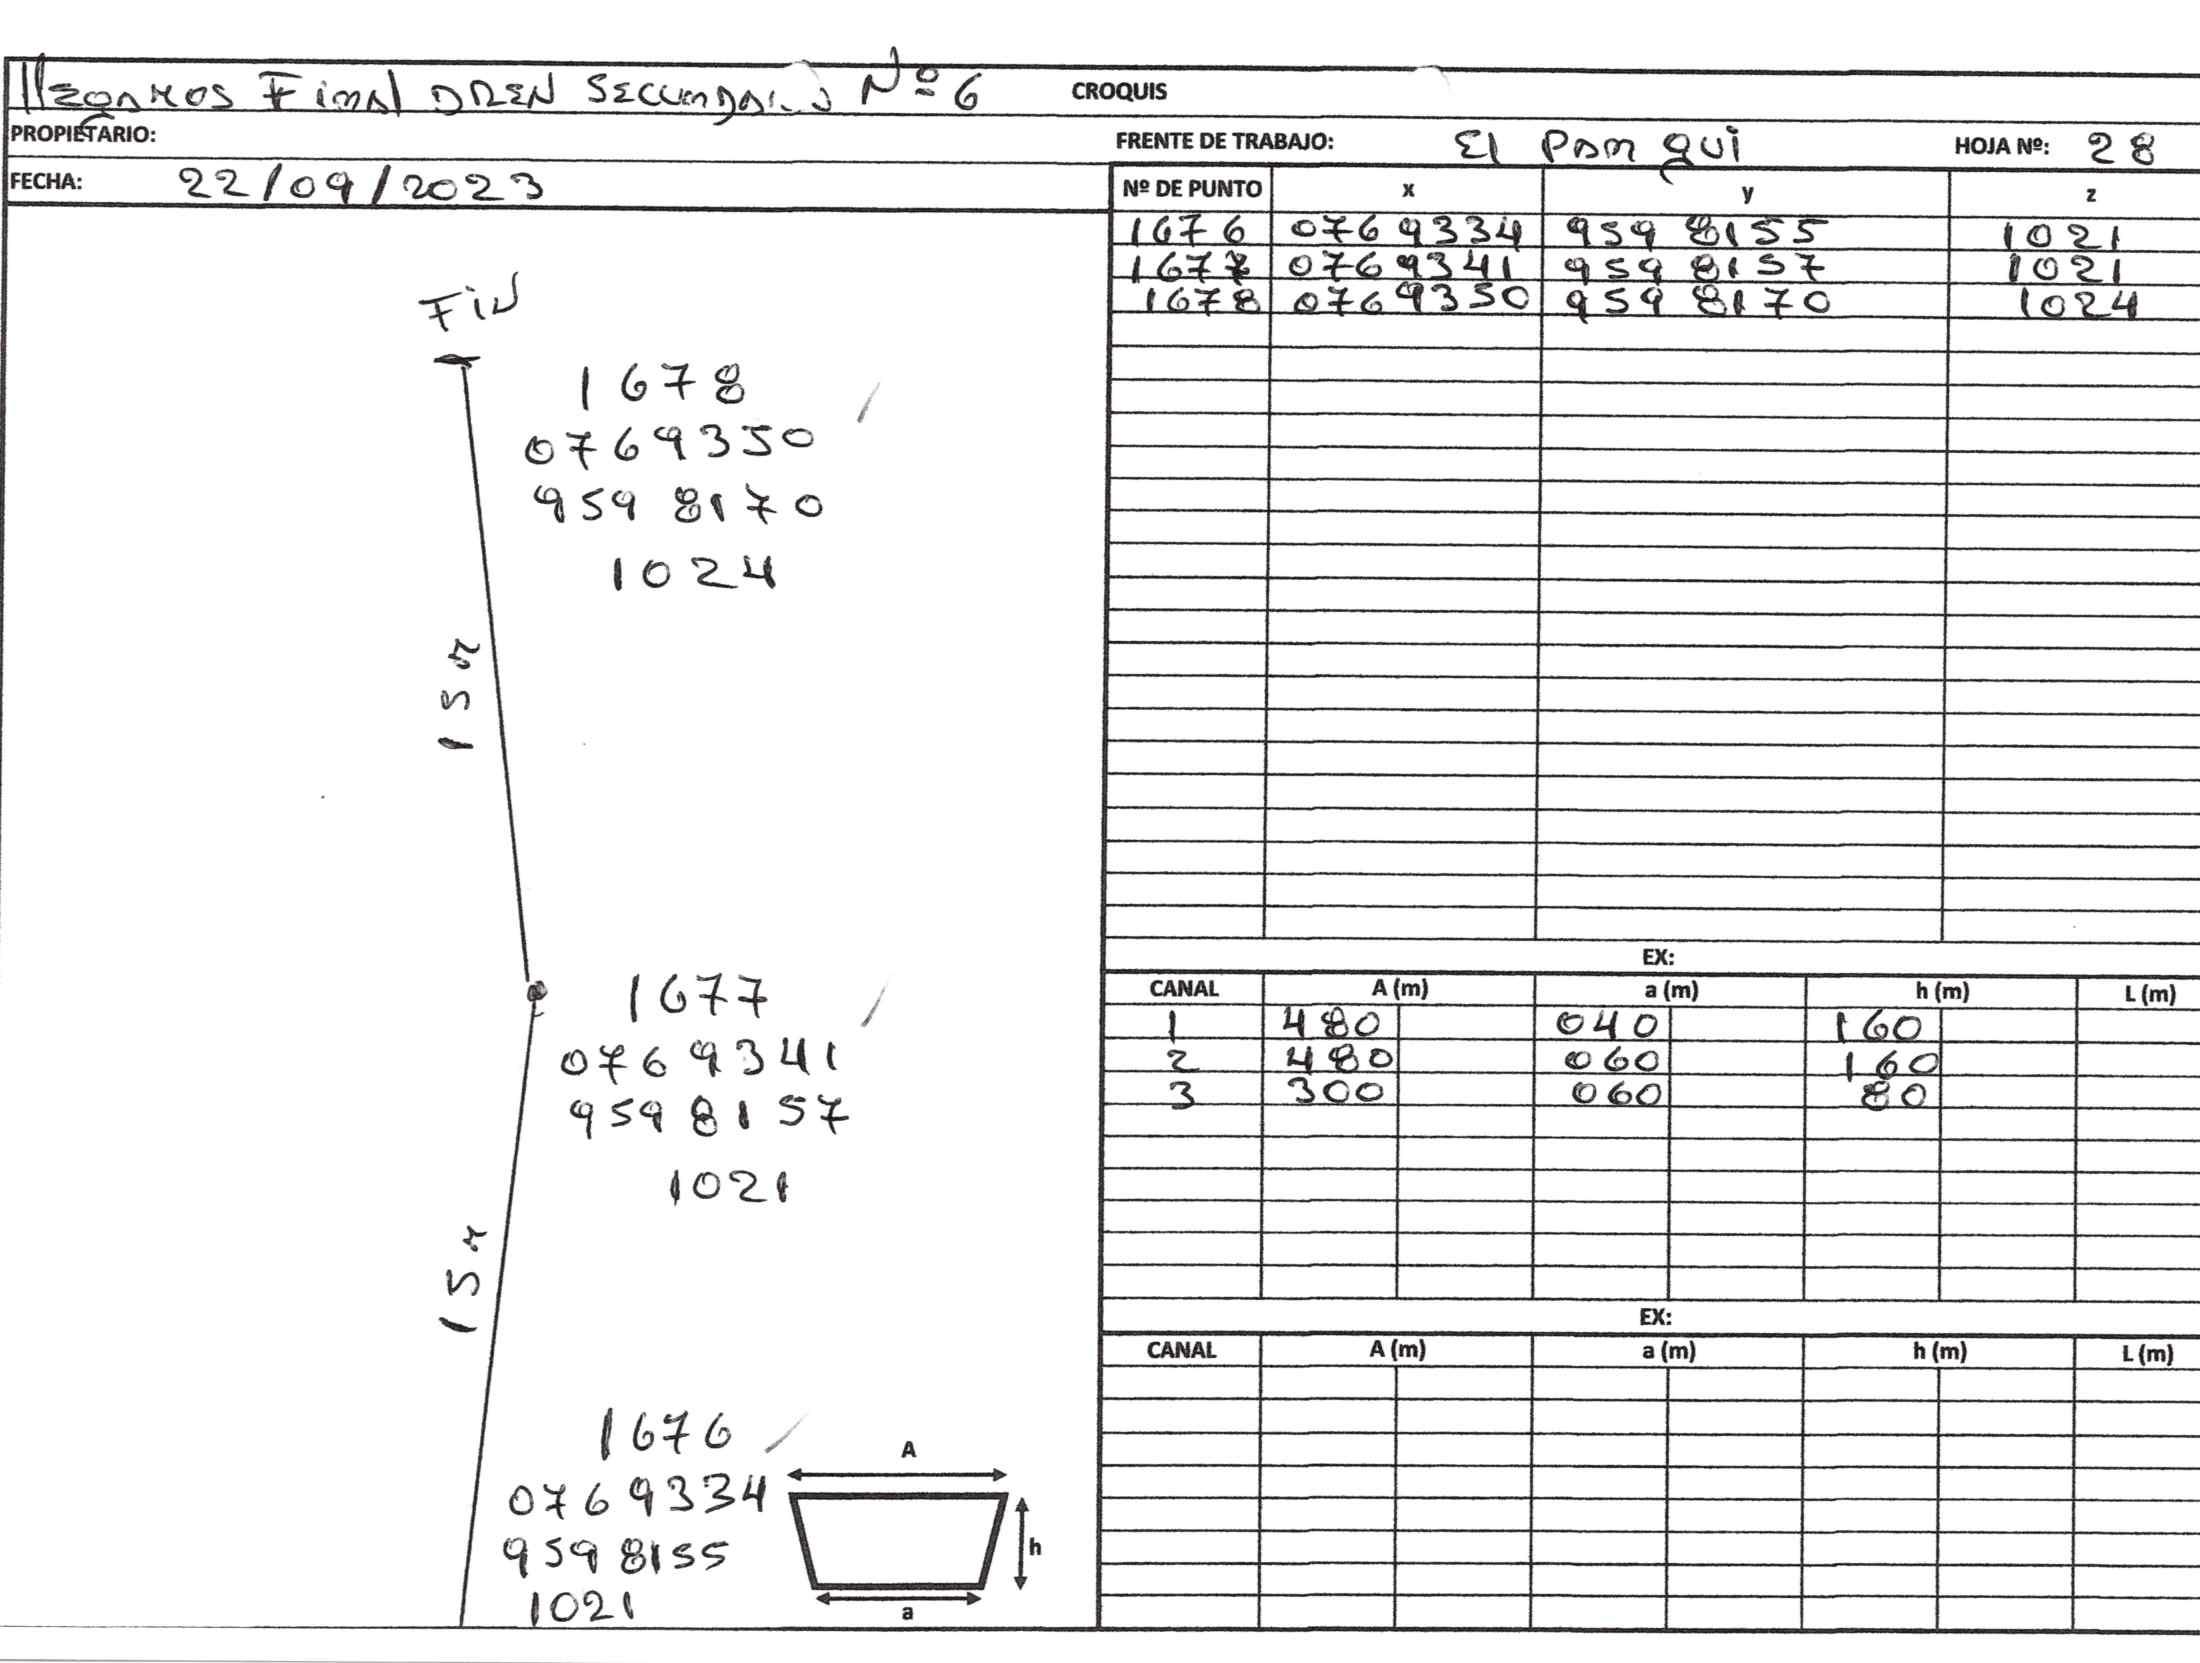 llegamos Final DREN SECUNDARIO Nº 6 CROQUIS
PROPIETARIO:
FRENTE DE TRABAJO: El Pangui HOJA Nº: 28
FECHA: 22/09/2023
Nº DE PUNTO x y z
1676 0769334 959 8155 1021
1677 0769341 959 8157 1021
1678 0769350 959 8170 1024
FIN
1678
0769350
959 8170
1024
15 m
1677
0769341
959 8157
1021
15 m
1676
0769334
959 8155
1021
A
h
a
EX:
CANAL A (m) a (m) h (m) L (m)
1 480 040 160
2 480 060 160
3 300 060 80
EX:
CANAL A (m) a (m) h (m) L (m)